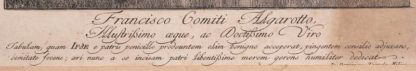 Francisco Comiti Algarotto,
Illustrissimo æque, ac Doctissimo Viro
Tabulam, quam IPSE e patrii penicillo prodeuntem olim benigne acceperat, pingentem consilio adjuvans,
comitate fovens; æri nunc a se incisam patri libentissime morem gerens humiliter dedicat